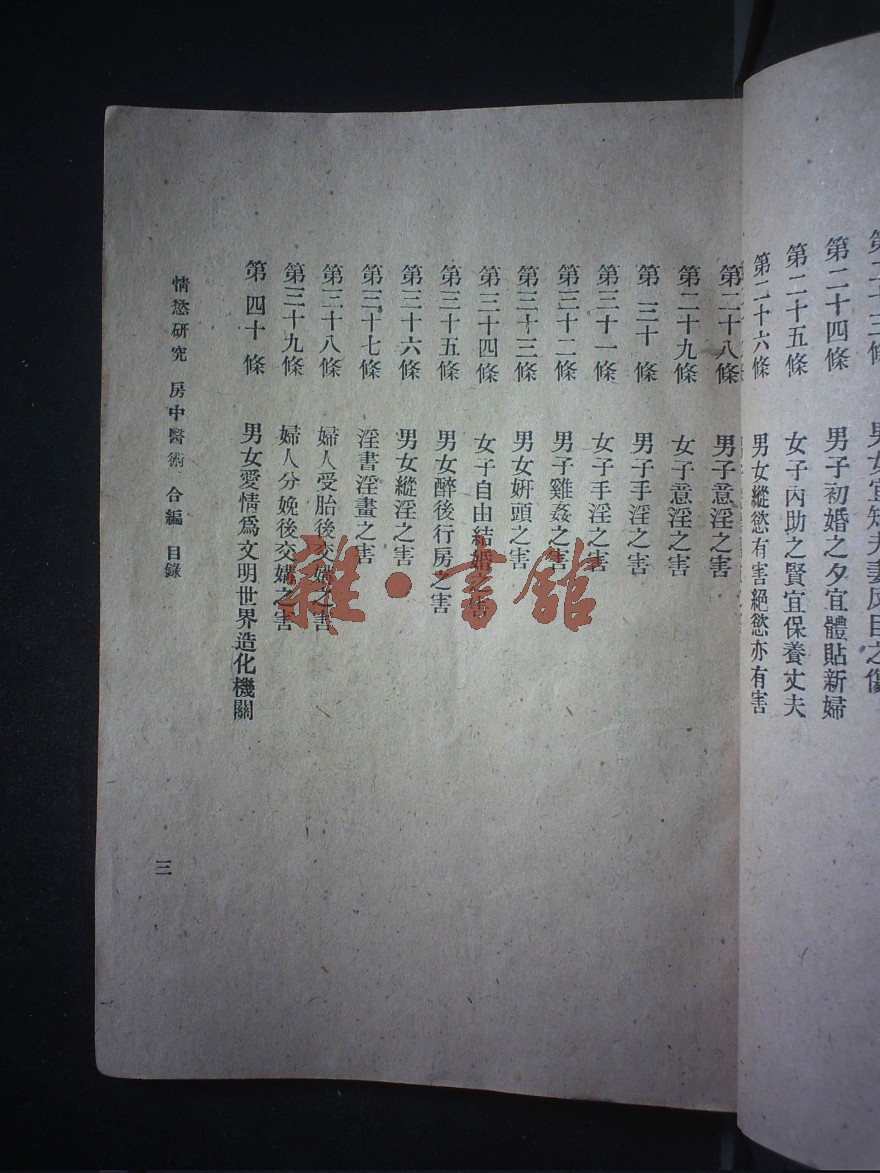 男女宜知夫妻反目之傷
第二十四條 男子初婚之夕宜體貼新婦
第二十五條 女子內助之賢宜保養丈夫
第二十六條 男女縱慾有害絕慾亦有害
第二十八條 男子意淫之害
第二十九條 女子意淫之害
第三十條 男子手淫之害
第三十一條 女子手淫之害
第三十二條 男子雞姦之害
第三十三條 男女姘頭之害
第三十四條 女子自由結婚之害
第三十五條 男女醉後行房之害
第三十六條 男女縱淫之害
第三十七條 淫書淫畫之害
第三十八條 婦人受胎後交媾之害
第三十九條 婦人分娩後交媾之害
第四十條 男女愛情爲文明世界造化機關
情慾研究 房中醫術 合編 目錄
三
雜·書館